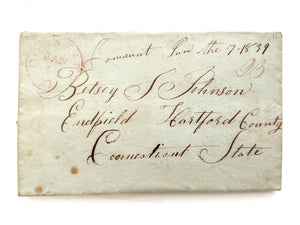 Conneaut Jan the 7. 1839
JAN
25
Betsey S Johnson
Endfield Hartford County
Connesticut State